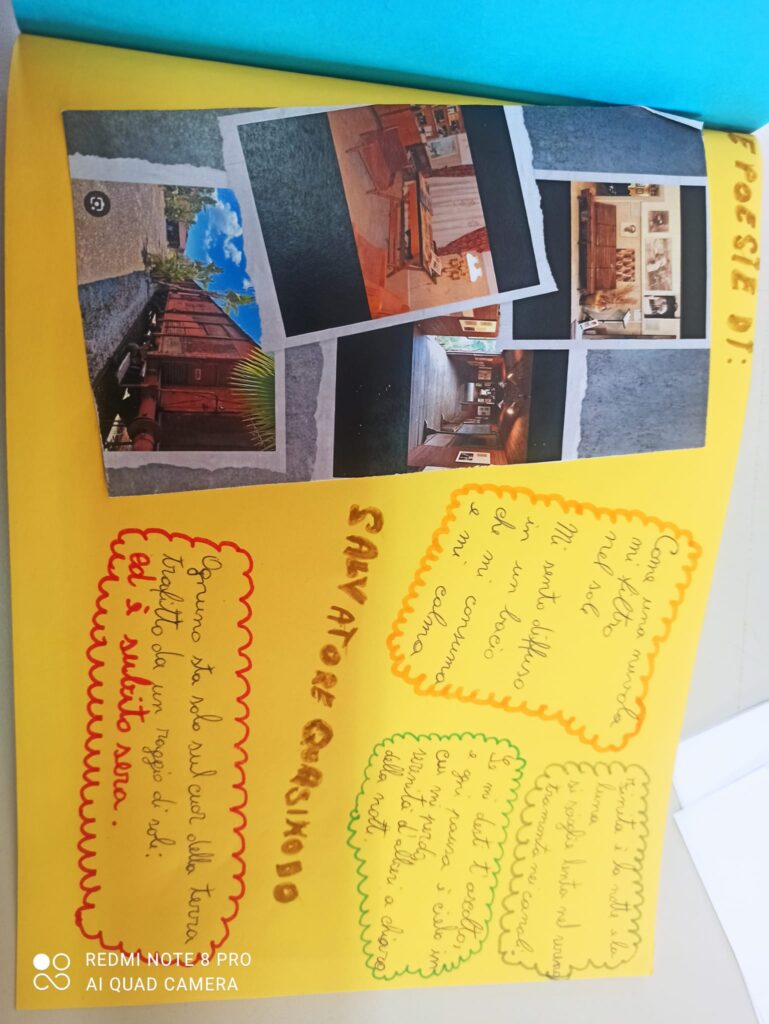 E POESIE DI:
Come una nuvola
mi filtro
nel sol
Mi sento diffuso
in un bacio
che mi consuma
e mi calma
Finita è la notte e la
luna
si lenta nel
tramonta nei canali.
mi desti t'ascolto,
e ogni pausa è cielo in
cui mi perdo,
serenità d'alberi a chiaro
della notti.
SALVATORE QUASIMODO
Ognuno sta solo sul cuor della terra
trafitto da un raggio di sole:
ed è subito sera.
REDMI NOTE 8 PRO
AI QUAD CAMERA